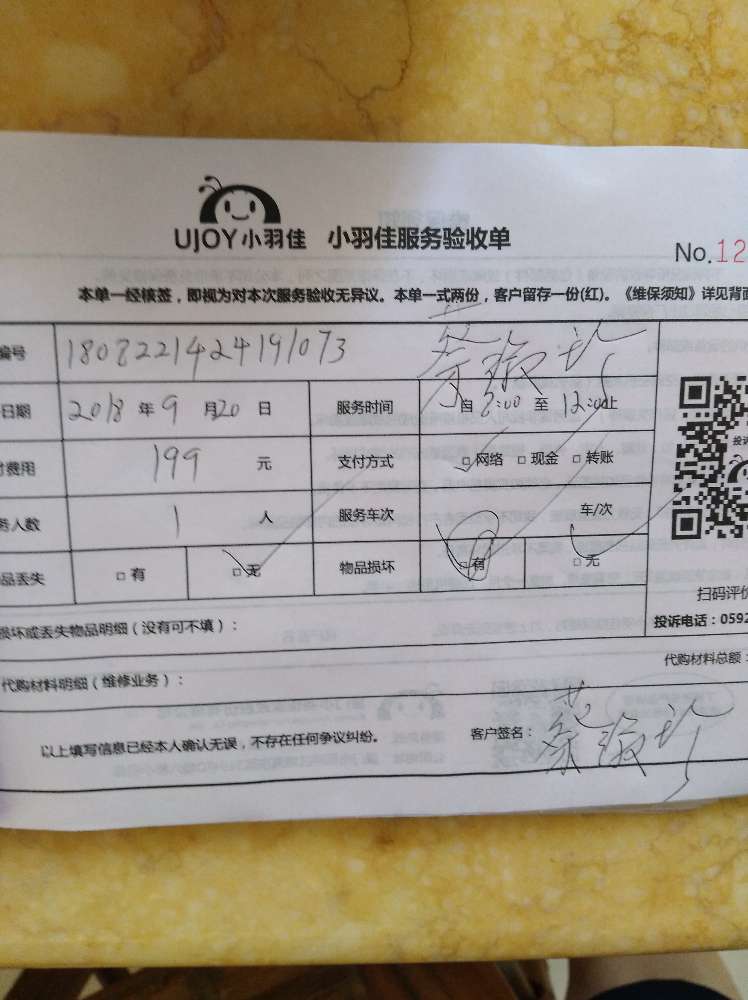 UJOY小羽佳 小羽佳服务验收单
No.12
本单一经核签,即视为对本次服务验收无异议。本单一式两份,客户留存一份(红)。《维保须知》详见背面
编号 1808221424191073
日期 2018 年 9 月 20 日 服务时间 自 8:00 至 12:00止
费用 199 元 支付方式 □网络 □现金 □转账
务人数 1 人 服务车次 车/次
品丢失 □有 □无 物品损坏 □有 □无
扫码评价
损坏或丢失物品明细(没有可不填): 投诉电话:0592
代购材料明细(维修业务): 代购材料总额:
以上填写信息已经本人确认无误,不存在任何争议纠纷。 客户签名: